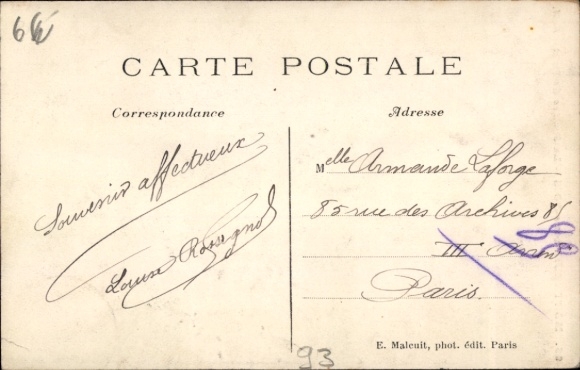 CARTE POSTALE
Correspondance
Adresse
Souvenir affectueux
Louise Rossignol
Melle Armande Laforge
85 rue des Archives 85
III Arron
Paris.
E. Malcuit, phot. édit. Paris
93